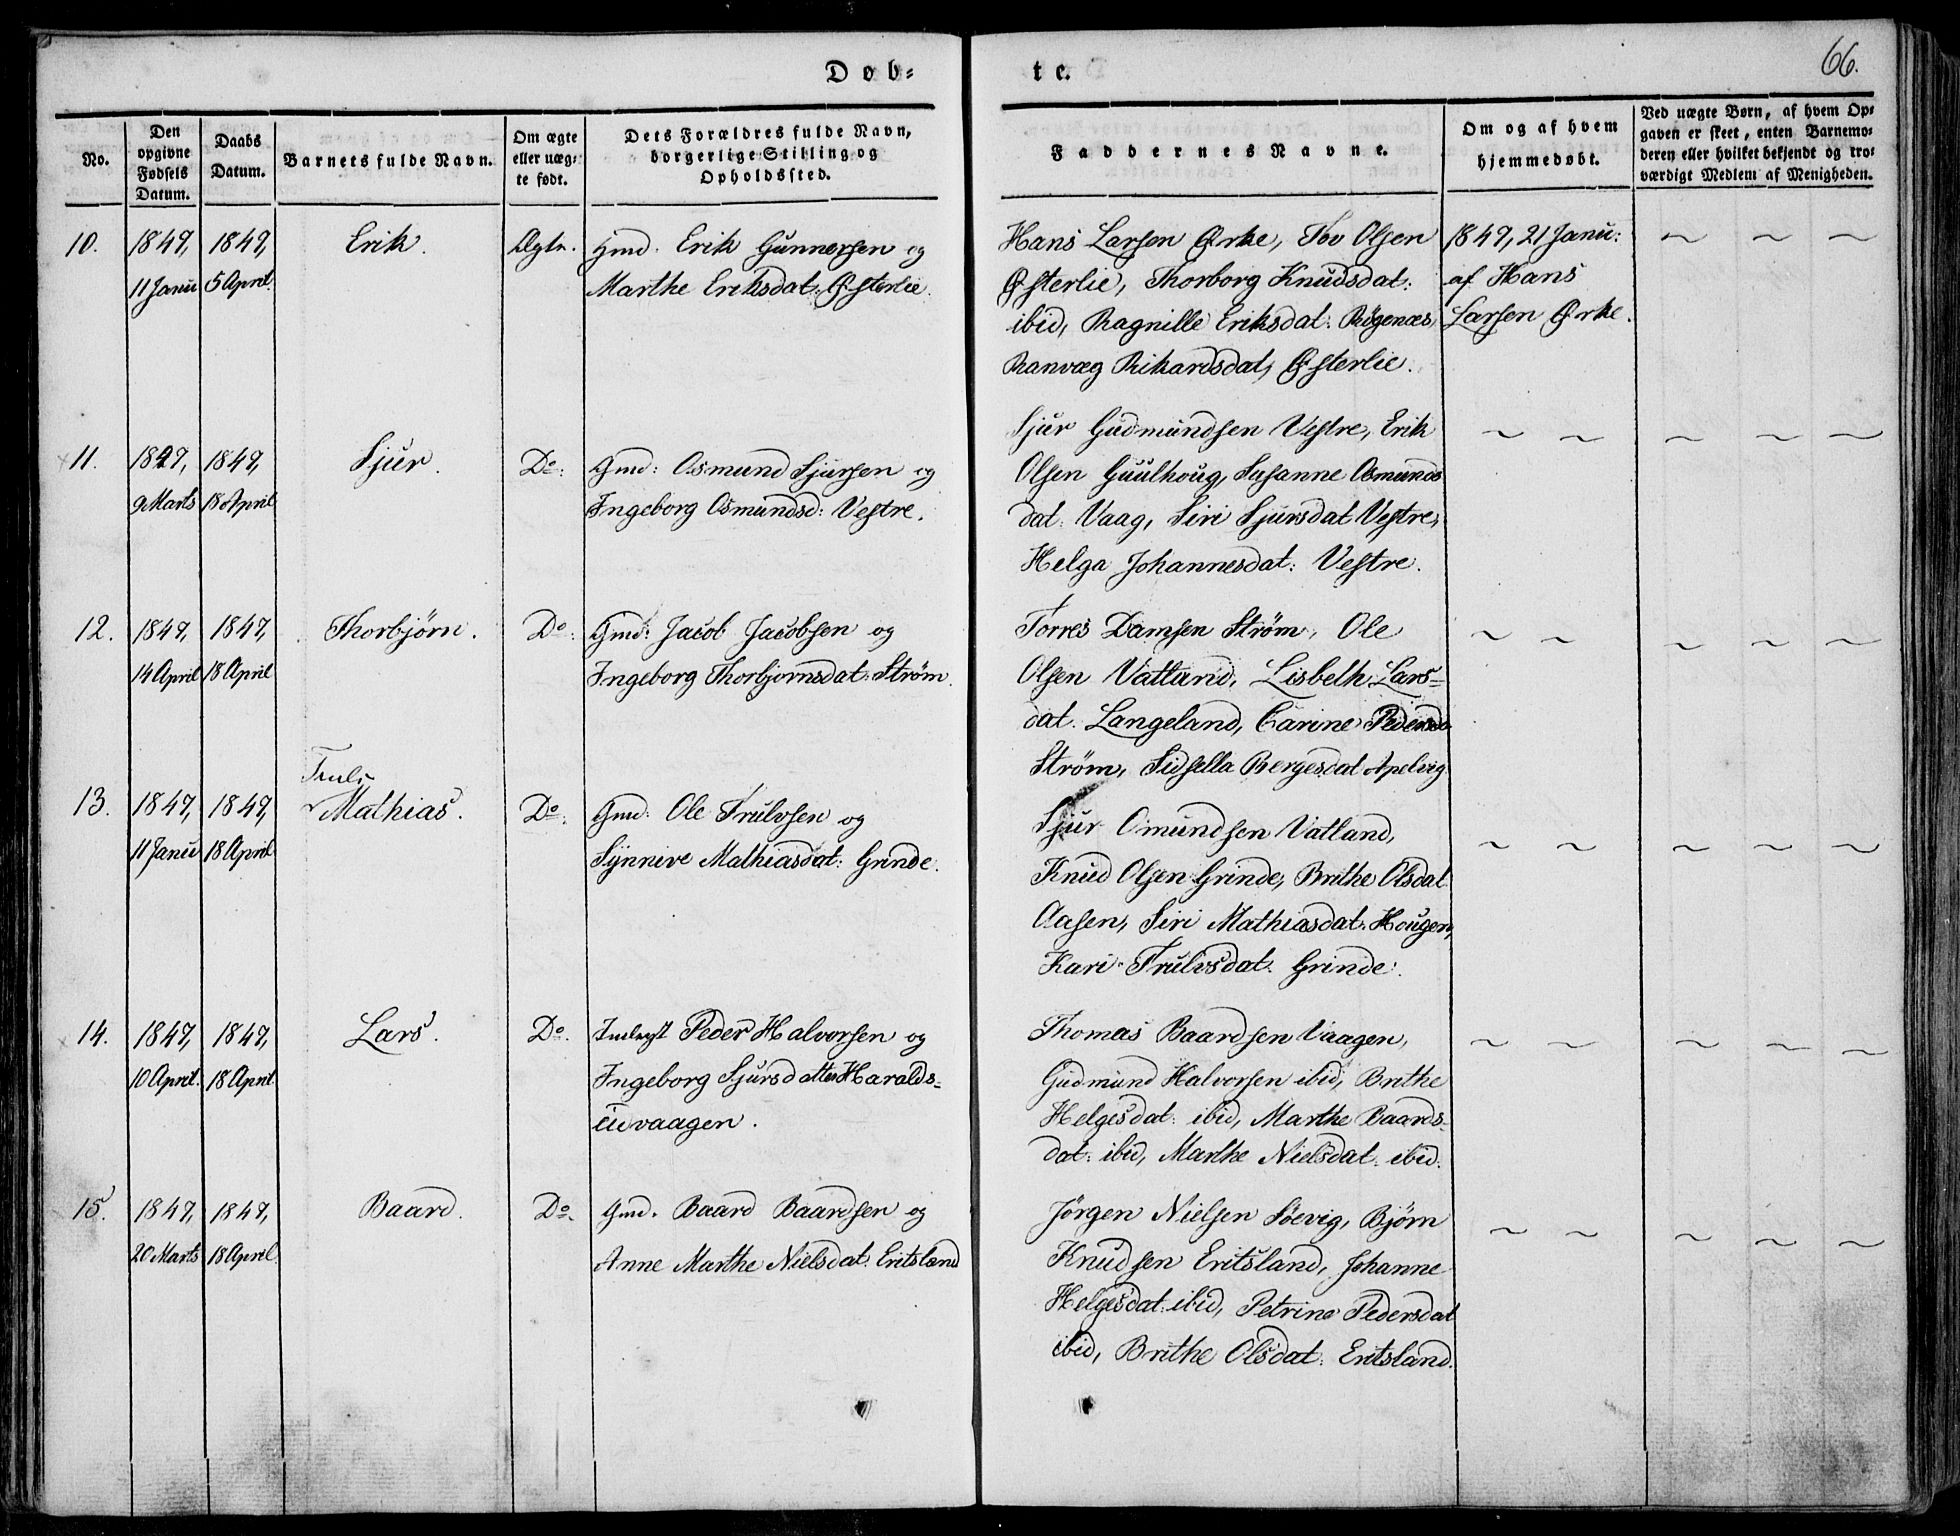 66.
Døb-
te.
No.
Den
opgivne
Fødsels
Datum.
Daabs
Datum.
Barnets fulde Navn.
Om ægte
eller uæg-
te født.
Dets Forældres fulde Navn,
borgerlige Stilling og
Opholdssted.
Faddernes Navne.
Om og af hvem
hjemmedøbt.
Ved uægte Børn, af hvem Op-
gaven er skeet, enten Barnemo-
deren eller hvilket bekjendt og tro-
værdigt Medlem af Menigheden.
10.
1847,
11 Janu
1847,
5 April.
Erik.
Ægte.
Gmd. Erik Gunnersen og
Marthe Eriksdat. Østerlie.
Hans Larsen Ørke, Tov Olsen
Østerlie, Thorborg Knudsdat:
ibid, Ragnille Eriksdat. Røgenæs,
Ranvæg Rikardsdat, Østerlie.
1847, 21 Janu:
af Hans
Larsen Ørke.
11.
1847,
9 Marts
1847,
18 April
Sjur.
Do:
Gmd: Osmund Sjursen og
Ingeborg Osmundsd: Vestre.
Sjur Gudmundsen Vestre, Erik
Olsen Guulhoug, Susanne Osmunds
dat. Vaag, Siri Sjursdat Vestre,
Helga Johannesdat: Vestre.
12.
1847,
14 April
1847,
18 April
Thorbjørn.
Do:
Gmd: Jacob Jacobsen og
Ingeborg Thorbjornsdat. Strøm.
Torres Damsen Strøm, Ole
Olsen Vatland, Lisbeth Lars-
dat. Langeland, Carine Pedersd
Strøm, Sidsella Bergesdat Apelvig
13.
1847,
11 Janu
1847,
18 April
Truls
Mathias.
Do:
Gmd: Ole Trulvsen og
Synnive Mathiasdat: Grinde.
Sjur Omundsen Vatland,
Knud Olsen Grinde, Brithe Olsdat
Aasen, Siri Mathiasdat. Hougen,
Kari Trulvsdat. Grinde.
14.
1847,
10 April.
1847,
18 April
Lars.
Do.
Inderst Peder Halvorsen og
Ingeborg Sjursdatter Haralds-
eidvaagen.
Thomas Baardsen Vaagen,
Gudmund Halvorsen ibid, Brithe
Helgesdat: ibid, Marthe Baards-
dat: ibid, Marthe Nielsdat. ibid.
15.
1847,
20 Marts
1847,
18 April.
Baard.
Do.
Gmd. Baard Baardsen og
Anne Marthe Nielsdat. Eritsland
Jörgen Nielsen Söevig, Bjørn
Knudsen Eritsland, Johanne
Helgesdat. ibid, Petrine Pedersdat
ibid, Brithe Olsdat: Eritsland.